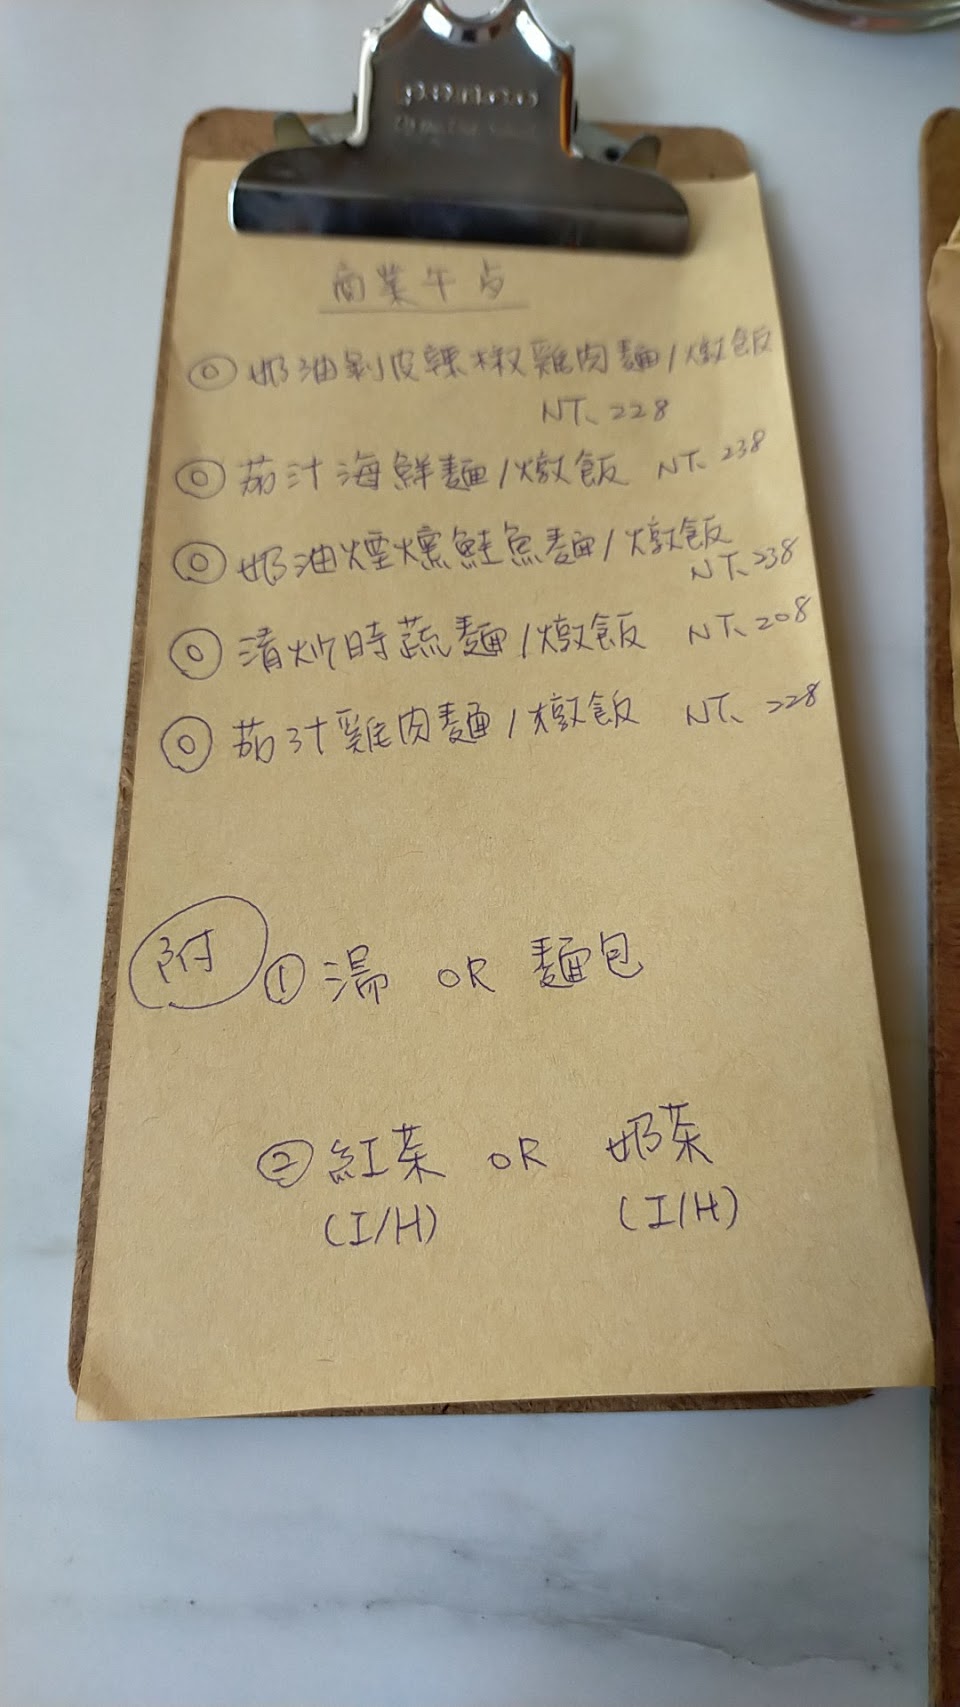 商業午点
◎ 奶油剝皮辣椒雞肉麵/燉飯
NT、228
◎ 茄汁海鮮麵/燉飯 NT、238
◎ 奶油煙燻鮭魚麵/燉飯
NT、238
◎ 清炒時蔬麵/燉飯 NT、208
◎ 茄汁雞肉麵/燉飯 NT、228
附 ① 湯 OR 麵包
② 紅茶 OR 奶茶
(I/H) (I/H)